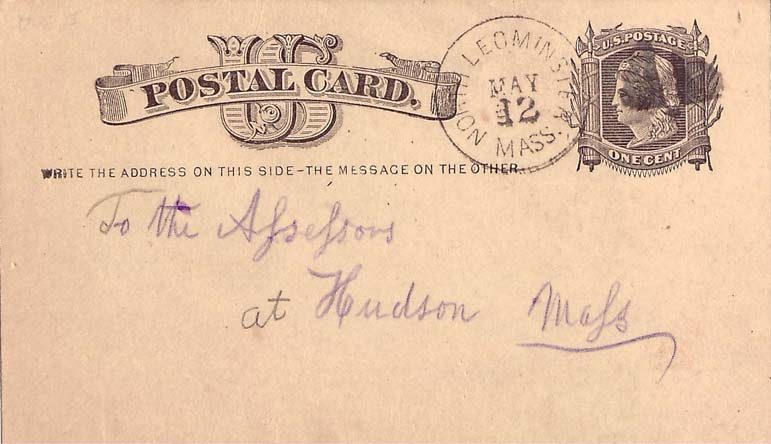 US
POSTAL CARD.
NORTH LEOMINSTER
MAY
12
MASS.
U.S. POSTAGE
ONE CENT
WRITE THE ADDRESS ON THIS SIDE - THE MESSAGE ON THE OTHER
To the Aſseſsors
at Hudson Maſs